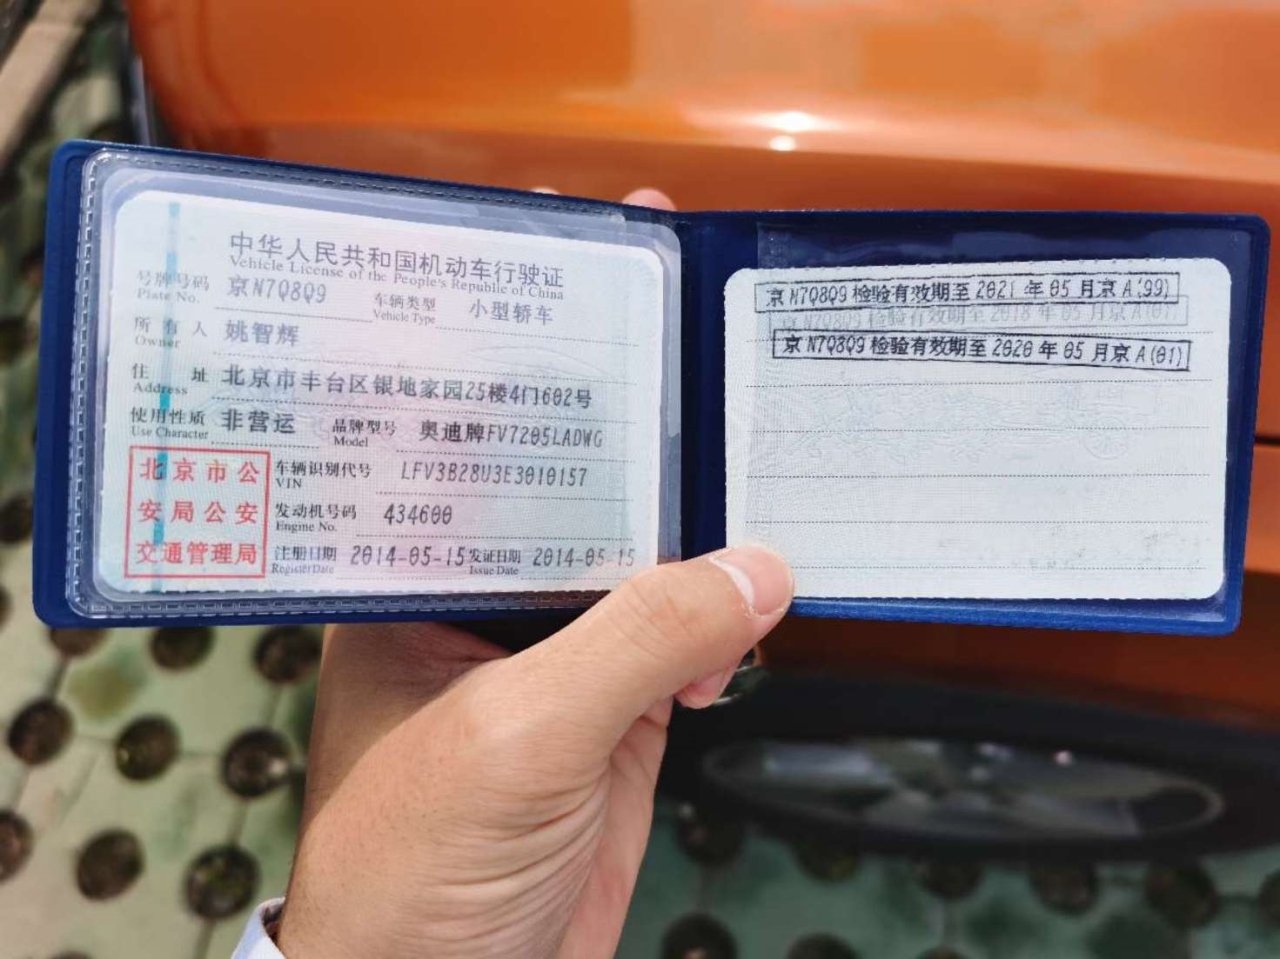 中华人民共和国机动车行驶证
Vehicle License of the People's Republic of China
号牌号码 京N7Q8Q9 车辆类型 小型轿车
Plate No. Vehicle Type
所有人 姚智辉
Owner
住址 北京市丰台区银地家园25楼4门602号
Address
使用性质 非营运 品牌型号 奥迪牌FV7205LADWG
Use Character Model
车辆识别代号 LFV3B28U3E3010157
VIN
发动机号码 434600
Engine No.
注册日期 2014-05-15 发证日期 2014-05-15
Register Date Issue Date
北京市公
安局公安
交通管理局
京N7Q8Q9检验有效期至2021年05月京A(99)
京N7Q8Q9检验有效期至2018年05月京A(07)
京N7Q8Q9检验有效期至2020年05月京A(01)